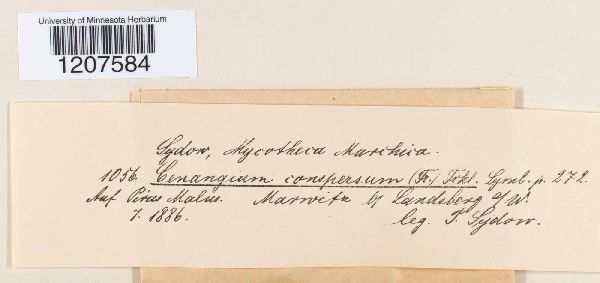 University of Minnesota Herbarium
1207584
Sydow, Mycotheca Marchica.
1056. Cenangium conspersum (Fr.) Fckl. Symb. p. 272.
Auf Pirus Malus. Marwitz b/ Landsberg a/W.
7. 1886. leg. P. Sydow.